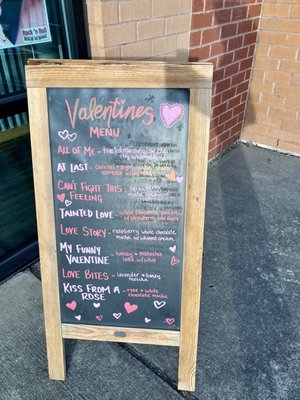 Rock 'n Roll
Valentines
MENU
ALL OF ME - toasted marshmallow
AT LAST - caramel +
CAN'T FIGHT THIS
FEELING
TAINTED LOVE white chocolate
LOVE STORY - raspberry white chocolate
mocha w/ whipped cream
MY FUNNY honey + pistachio
VALENTINE w/ whip
LOVE BITES - lavender + honey
mocha
KISS FROM A - rose + white
ROSE chocolate mocha